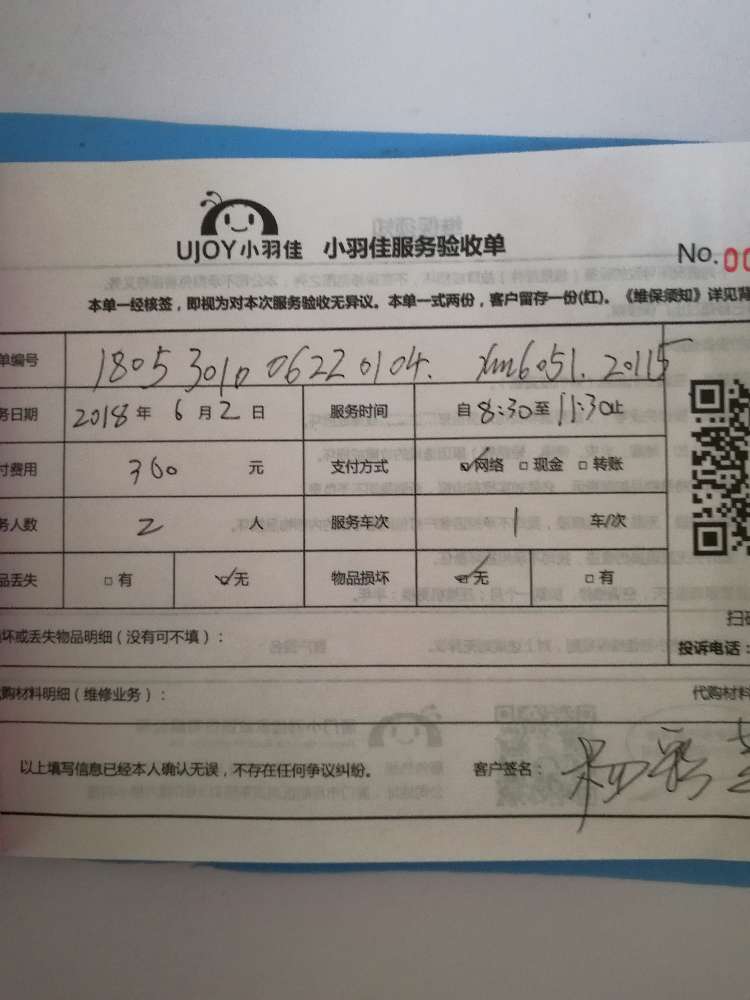 UJOY小羽佳 小羽佳服务验收单
No. 00
本单一经核签，即视为对本次服务验收无异议。本单一式两份，客户留存一份(红)。《维保须知》详见背
单编号 18053010 06220104. xm6051.20115
务日期 2018年 6月2日 服务时间 自8:30至11:30止
付费用 300 元 支付方式 ☑网络 □现金 □转账
务人数 2 人 服务车次 1 车/次
品丢失 □有 ☑无 物品损坏 ☑无 □有
坏或丢失物品明细（没有可不填）：
扫码
投诉电话：
购材料明细（维修业务）： 代购材料
以上填写信息已经本人确认无误，不存在任何争议纠纷。 客户签名：